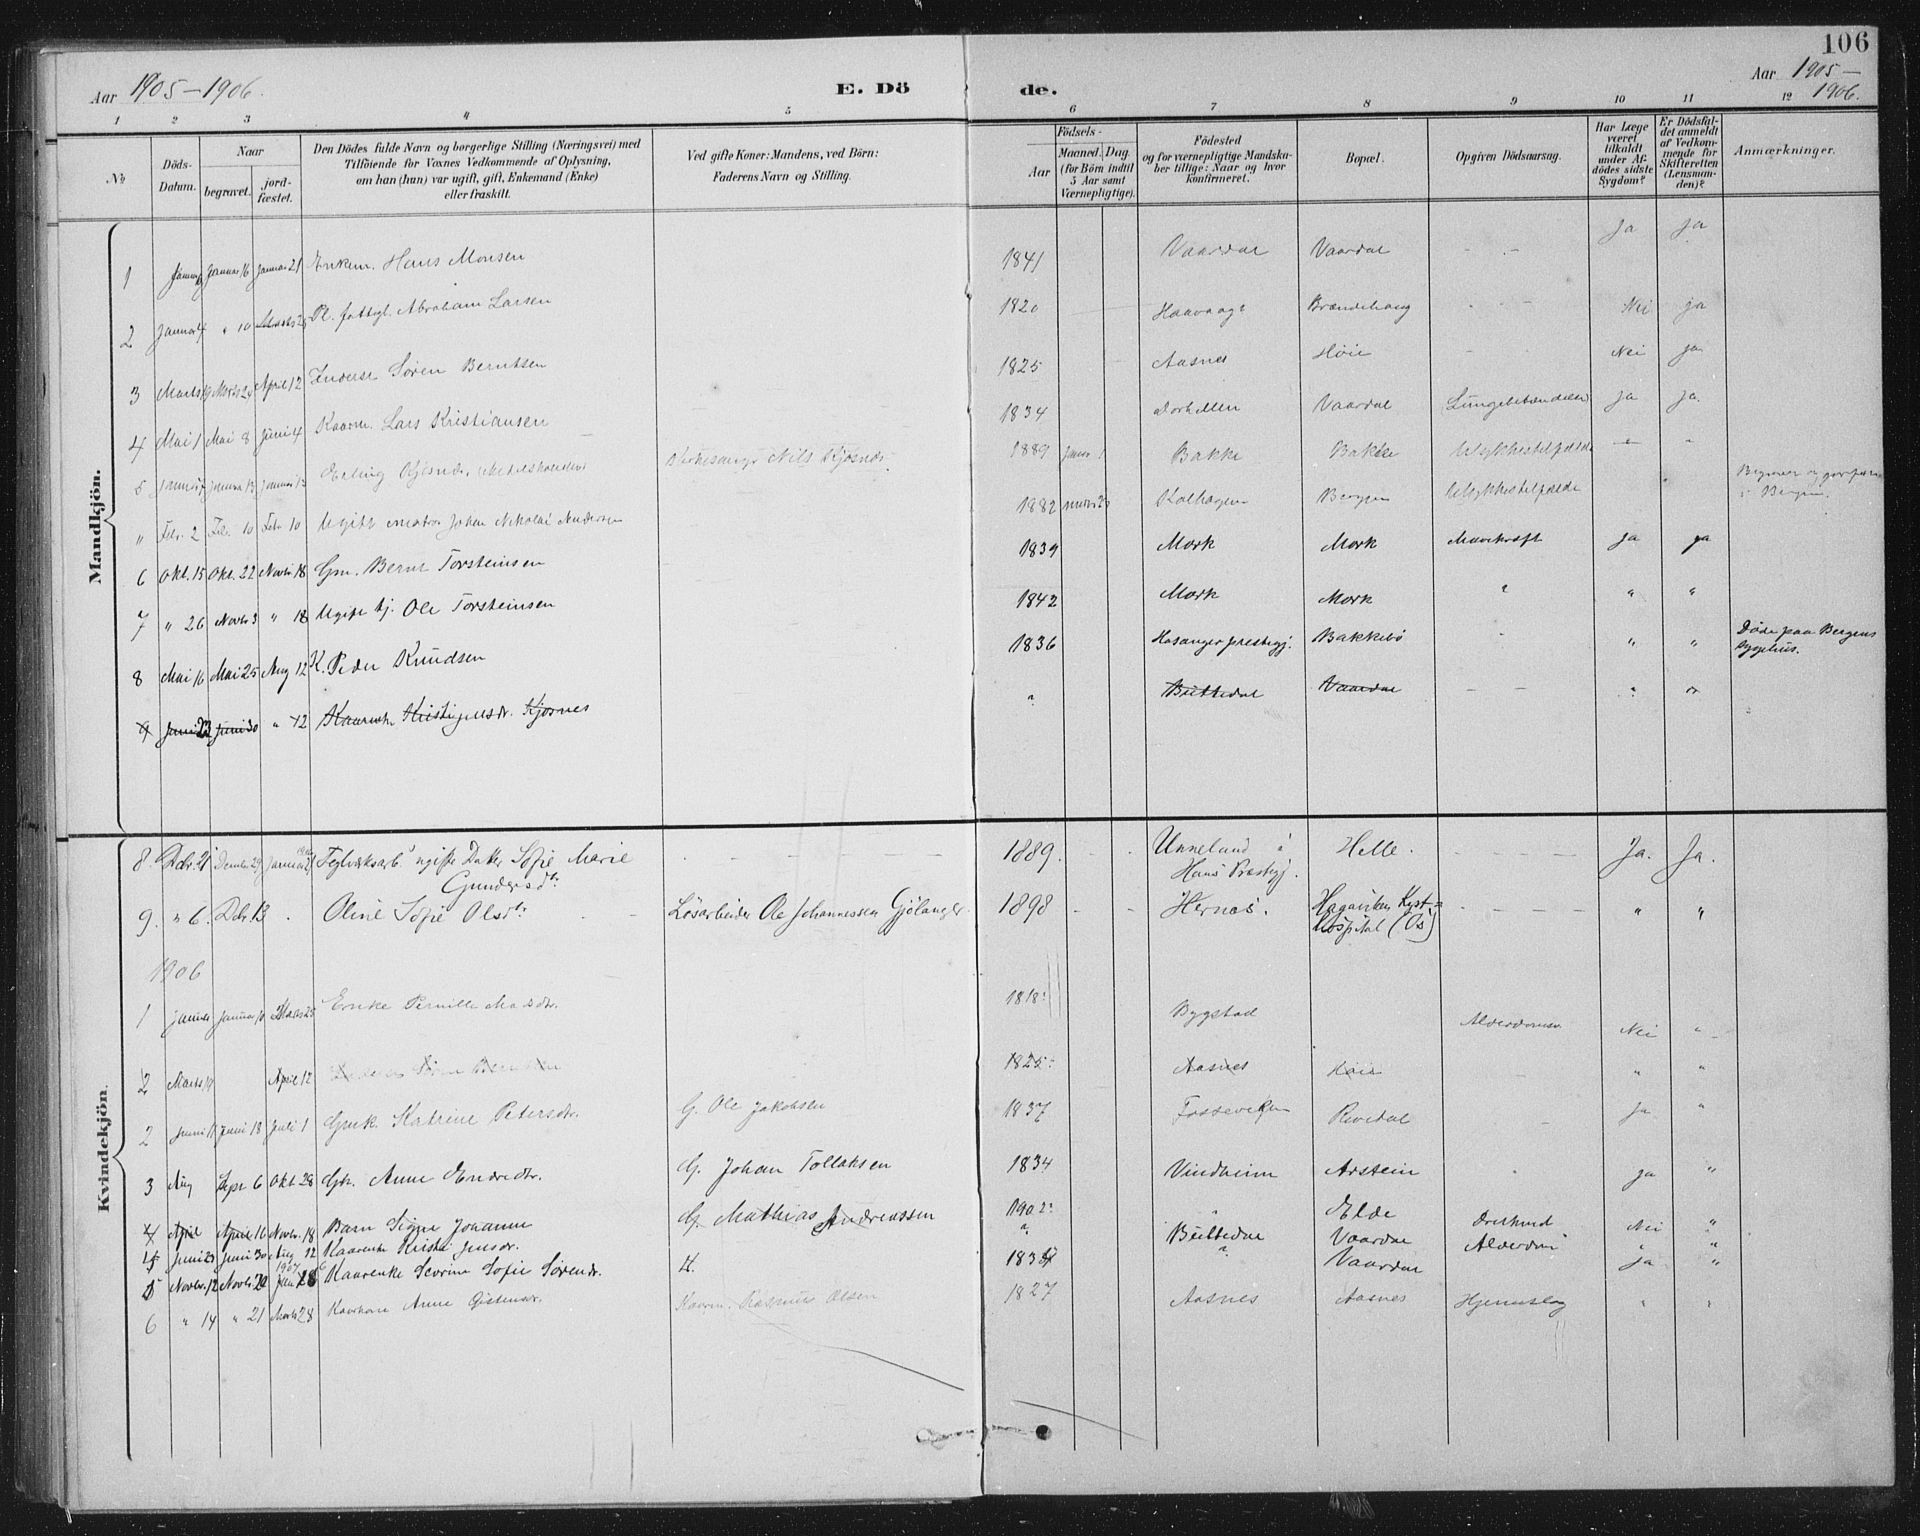 106
Aar 1905-1906.
E. Dö
de.
Aar 1905-
1906.
1 2 3 4 5 6 7 8 9 10 11 12
№
Döds-
Datum.
Naar
begravet.
jord-
fæstet.
Den Dödes fulde Navn og borgerlige Stilling (Næringsvei) med
Tilföiende for Voxnes Vedkommende af Oplysning,
om han (hun) var ugift, gift, Enkemand (Enke)
eller fraskilt.
Ved gifte Koner: Mandens, ved Börn:
Faderens Navn og Stilling.
Födsels-
Aar
Maaned. Dag.
(for Börn indtil
5 Aar samt
Værnepligtige).
Födested
og for værnepligtige Mandska-
ber tillige: Naar og hvor
konfirmeret.
Bopæl.
Opgiven Dödsaarsag.
Har Læge
været
tilkaldt
under Af-
dödes sidste
Sygdom?
Er Dödsfal-
det anmeldt
af Vedkom-
mende for
Skifteretten
(Lensman-
den)?
Anmærkninger.
Mandkjön.
1 Januar 16 Januar 21 Enkem. Hans Monsen 1841 Vaardal Vaardal - - Ja Ja
2 Januar 4 " 10 Marts 25 Pl. fattigl. Abraham Larsen 1820 Brændehaug - - Nei ja
3 Marts 19 Marts 24 April 12 Inderst Sören Berntsen 1825 Aasnes Höie - Nei ja
4 Mai 1 Mai 8 Juni 4 Kaarm. Lars Kristiansen 1834 Vaardal Lungebetændelse ja ja
5 Januar 13 Januar 13 Erling Kjosnes, Kirkesanger Nils Kjosnes 1889 Janr 1 Bakke Bakke Ulykkestilfælde - "
" Febr. 2 Feb. 10 Febr. 10 Ugift matros Johan Nikolai Andersen 1882 Kolhagen Bergen Ulykkestilfælde
i Bergen.
6 Okt. 15 Okt. 22 Novbr 18 Gm. Bernt Torsteinsen 1839 Mork Mork Mavekræft ja ja
7 " 26 Novbr 3 " 18 Ugift tj. Ole Torsteinsen 1842 Mork Mork " " "
8 Mai 16 Mai 25 Aug 12 K. Peder Knudsen 1836 Hosanger prestegj. Bakkebö " " Döde paa Bergens
sygehus.
9 Juni 23 Juni 30 " 12 Kaarenke Kristi Jensdr. Kjosnes " Buttedal Vaardal - - " "
Kvindekjön.
8. Dcbr. 21 Decembr 29 Januar Teglværksarb. ugifte Datter Sofie Marie - - - 1889. - Unneland i Helle. Ja. Ja.
Gundersdtr. Hans Præstegj.
9. " 6. Dcbr. 13 Oline Sofie Olsdtr. - Lösarbeider Ole Johannessen Gjölanger. 1898 - - Hernes. Hagaviken Kyst- - - - - " "
hospital (Os)
1906
1 Januar Januar 10 Marts 25 Enke Pernille Madsdtr. 1818: Bygstad Alderdomsv. Nei "
2 Marts 19 April 12 Sören Berntsen 1825: Aasnes Höie " "
2 Juni 11 Juni 18 Juli 1 Gmk. Katrine Petersdtr. G. Ole Jakobsen 1837 Fosseviken Rivedal - ja "
3 Aug Sept 6 Okt 28 Gk. Anne Endredtr. G. Johan Tollaksen 1834 Vindheim Arstein " ja "
4 April April 16 Novbr. 18 Barn Signe Johanne G. Mathias Andreassen 1902: " Elde Nei "
4 Juni 23 Juni 30 Aug 12 Kaarenke Kristi Jensdr. " Buttedal Vaardal Alderdom " "
5 Novbr. 12 Novbr. 20 1907 Kaarenke Severine Sofie Sörendr. 4. " Vaardal ja "
6 " 14 " 21 Marts 28 Kaarkone Anne Östensdr. Kaarm. Rasmus Olsen 1827 Aasnes Aasnes Hjerneslag " "